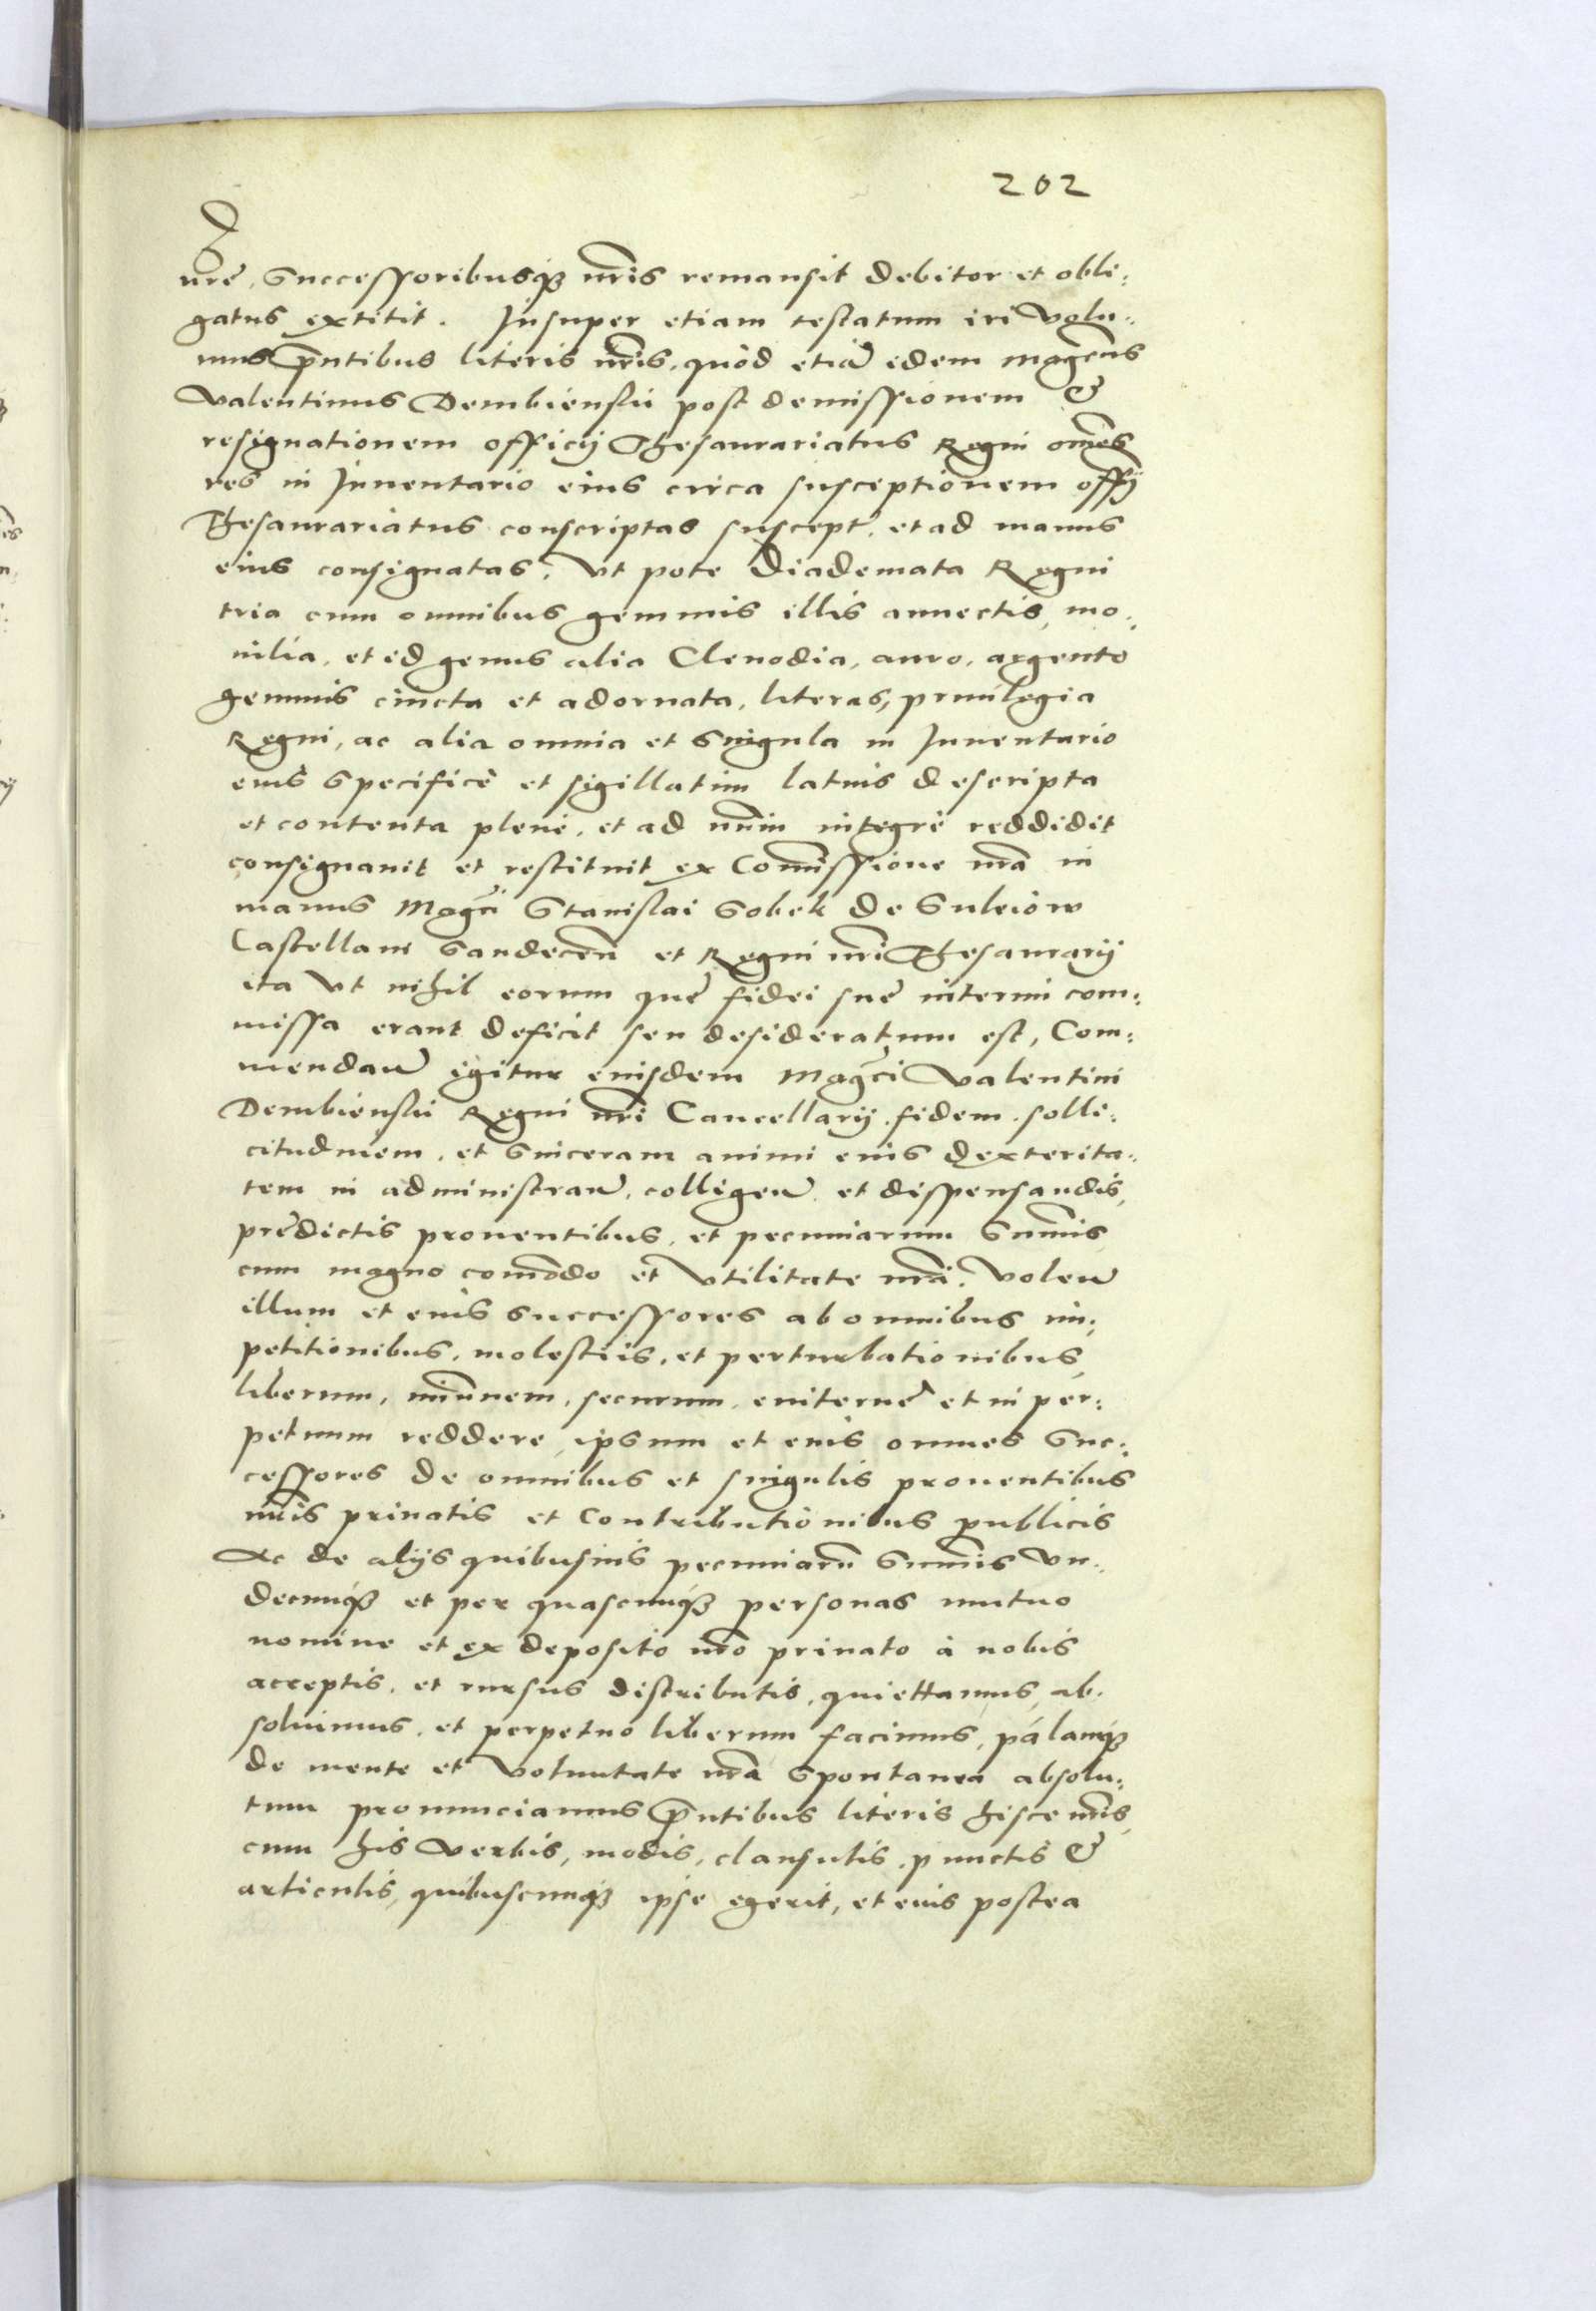 202
nrẽ, Successoribusqȝ nr̃is remansit debitor et obli:
gatus extitit. Insuper etiam testatum iri Volu:
mus p̃ntibus literis nr̃is, quòd etiã idem magcus
Valentinus Dembienskii post demissionem &
resignationem officij Thesaurariatus Regni om̃es
res in Inuentario eius circa susceptionem offĩj
Thesaurariatus conscriptas suscept. et ad manus
eius consignatas, Vt pote Diademata Regni
tria cum omnibus gemmis illis annectis, mo:
nilia, et id genus alia Clenodia, auro, argento
gemmis cincta et adornata, literas, priuilegia
Regni, ac alia omnia et Singula in Inuentario
eius Specificè et sigillatim latius descripta
et contenta plenè, et ad vnũ integrè reddidit
consignauit et restituit ex Com̃issione nr̃a in
manus Magci Stanislai Sobek de Suleiow
Castellani Sandecen̄ et Regni nr̃i Thesaurarij
ita Vt nihil eorum quę fidei suę interim com:
missa erant deficit seu desideratum est, Com:
mendan̄ igitur eiusdem Magci Valentini
Dembienskii Regni nr̃i Cancellarij fidem, solli:
citudinem, et Sinceram animi eius dexterita:
tem in administran̄, colligen̄, et dispensandis,
prędictis prouentibus, et pecuniarum Sum̃is
cum magno com̃odo et Vtilitate nr̃a, Volen̄
illum et eius Successores ab omnibus im:
petitionibus, molestiis, et perturbationibus,
liberum, im̃unem, securum, euiternè et in per:
petuum reddere, ipsum et eius omnes Suc:
cessores de omnibus et singulis prouentibus
nr̃is priuatis et Contributionibus publicis
Ac de alijs quibusuis pecuniarũ Sum̃is Vn:
decunqȝ et per quascunqȝ personas mutuo
nomine et ex deposito nr̃o priuato à nobis
acceptis, et rursus distributis, quiettamus, ab:
soluimus, et perpetuo liberum facimus, palamqȝ
de mente et Voluntate nr̃a Spontanea absolu:
tum pronunciamus p̃ntibus literis hisce nr̃is,
cum his Verbis, modis, clausulis, punctis &
articulis, quibuscunqȝ ipse egerit, et eius postea